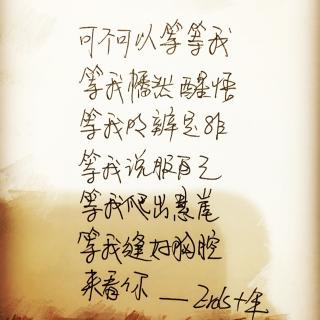 可不可以等等我
等我幡然醒悟
等我明辨是非
等我说服自己
等我爬出悬崖
等我缝好胸腔
来看你